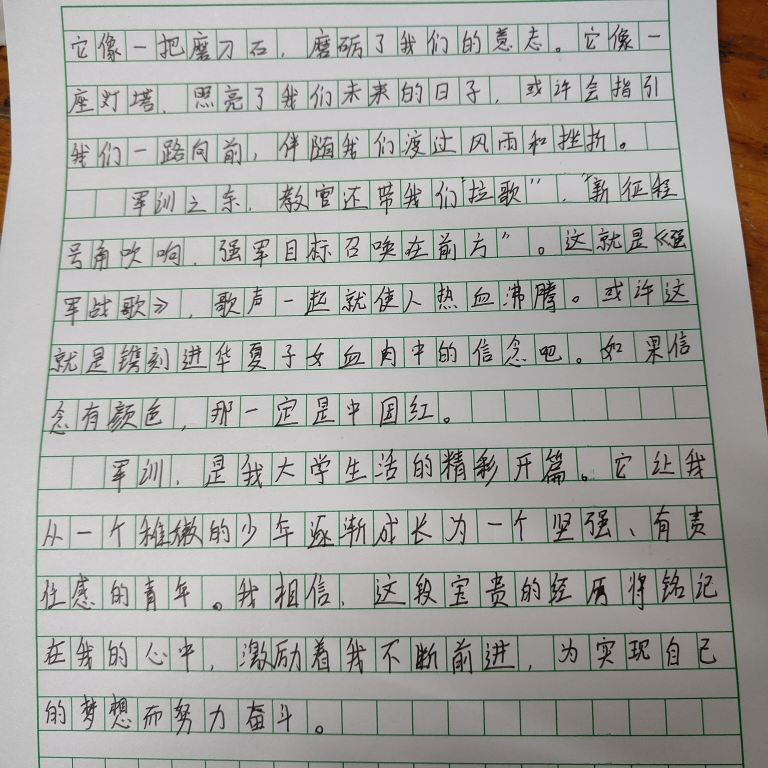 它像一把磨刀石，磨砺了我们的意志。它像一
座灯塔，照亮了我们未来的日子，或许会指引
我们一路向前，伴随我们渡过风雨和挫折。
军训之东，教官还带我们“拉歌”，“新征程
号角吹响，强军目标召唤在前方”。这就是《强
军战歌》，歌声一起就使人热血沸腾。或许这
就是镌刻进华夏子女血肉中的信念吧。如果信
念有颜色，那一定是中国红。
军训，是我大学生活的精彩开篇。它让我
从一个稚嫩的少年逐渐成长为一个坚强、有责
任感的青年。我相信，这段宝贵的经历将铭记
在我的心中，激励着我不断前进，为实现自己
的梦想而努力奋斗。